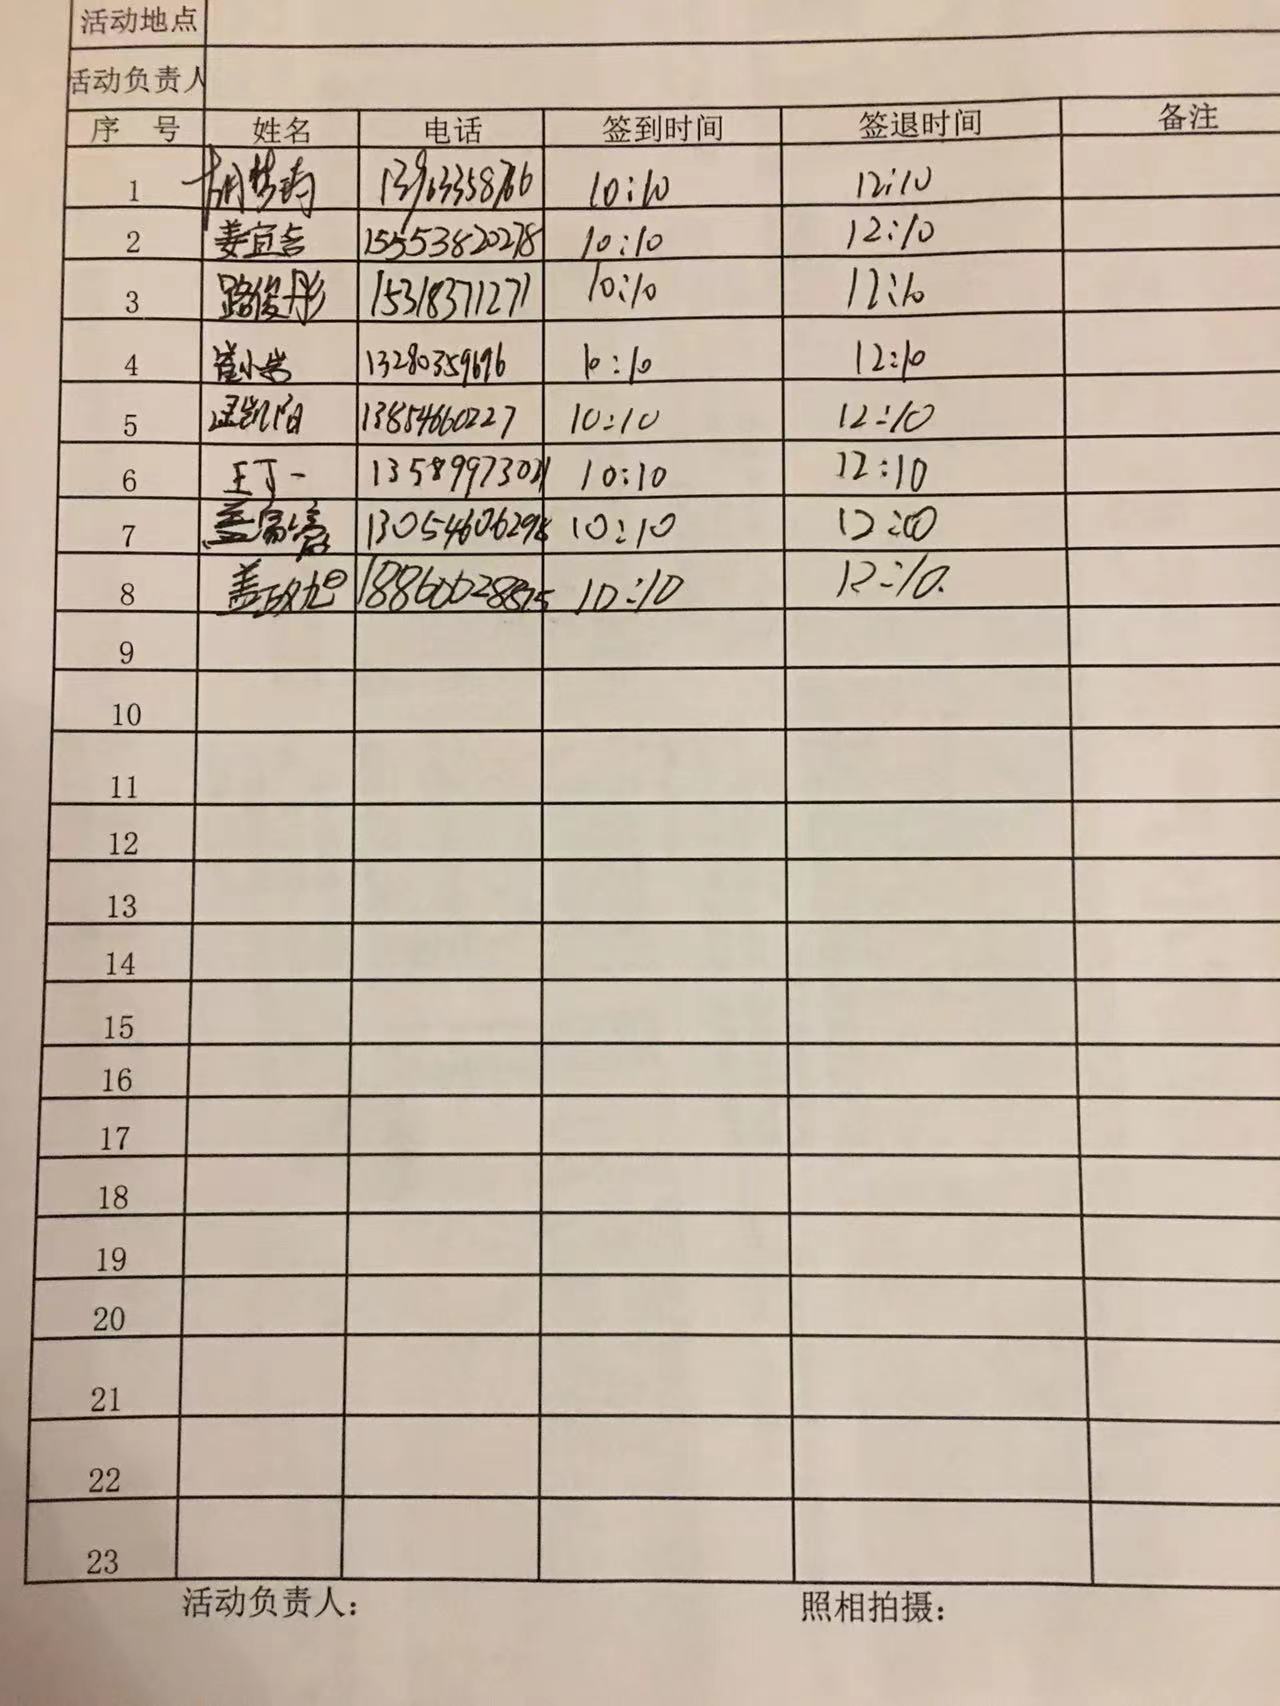 活动地点
活动负责人
序号 姓名 电话 签到时间 签退时间 备注
1 胡梦 10:10 12:10
2 姜宜吉 15553820278 10:10 12:10
3 路俊彤 15318371271 10:10 12:10
4 崔小岩 13280359696 10:10 12:10
5 凯阳 13854660227 10:10 12:10
6 王丁一 13589973021 10:10 12:10
7 盖 13054606298 10:10
8 盖政旭 10:10 12:10.
9
10
11
12
13
14
15
16
17
18
19
20
21
22
23
活动负责人： 照相拍摄：